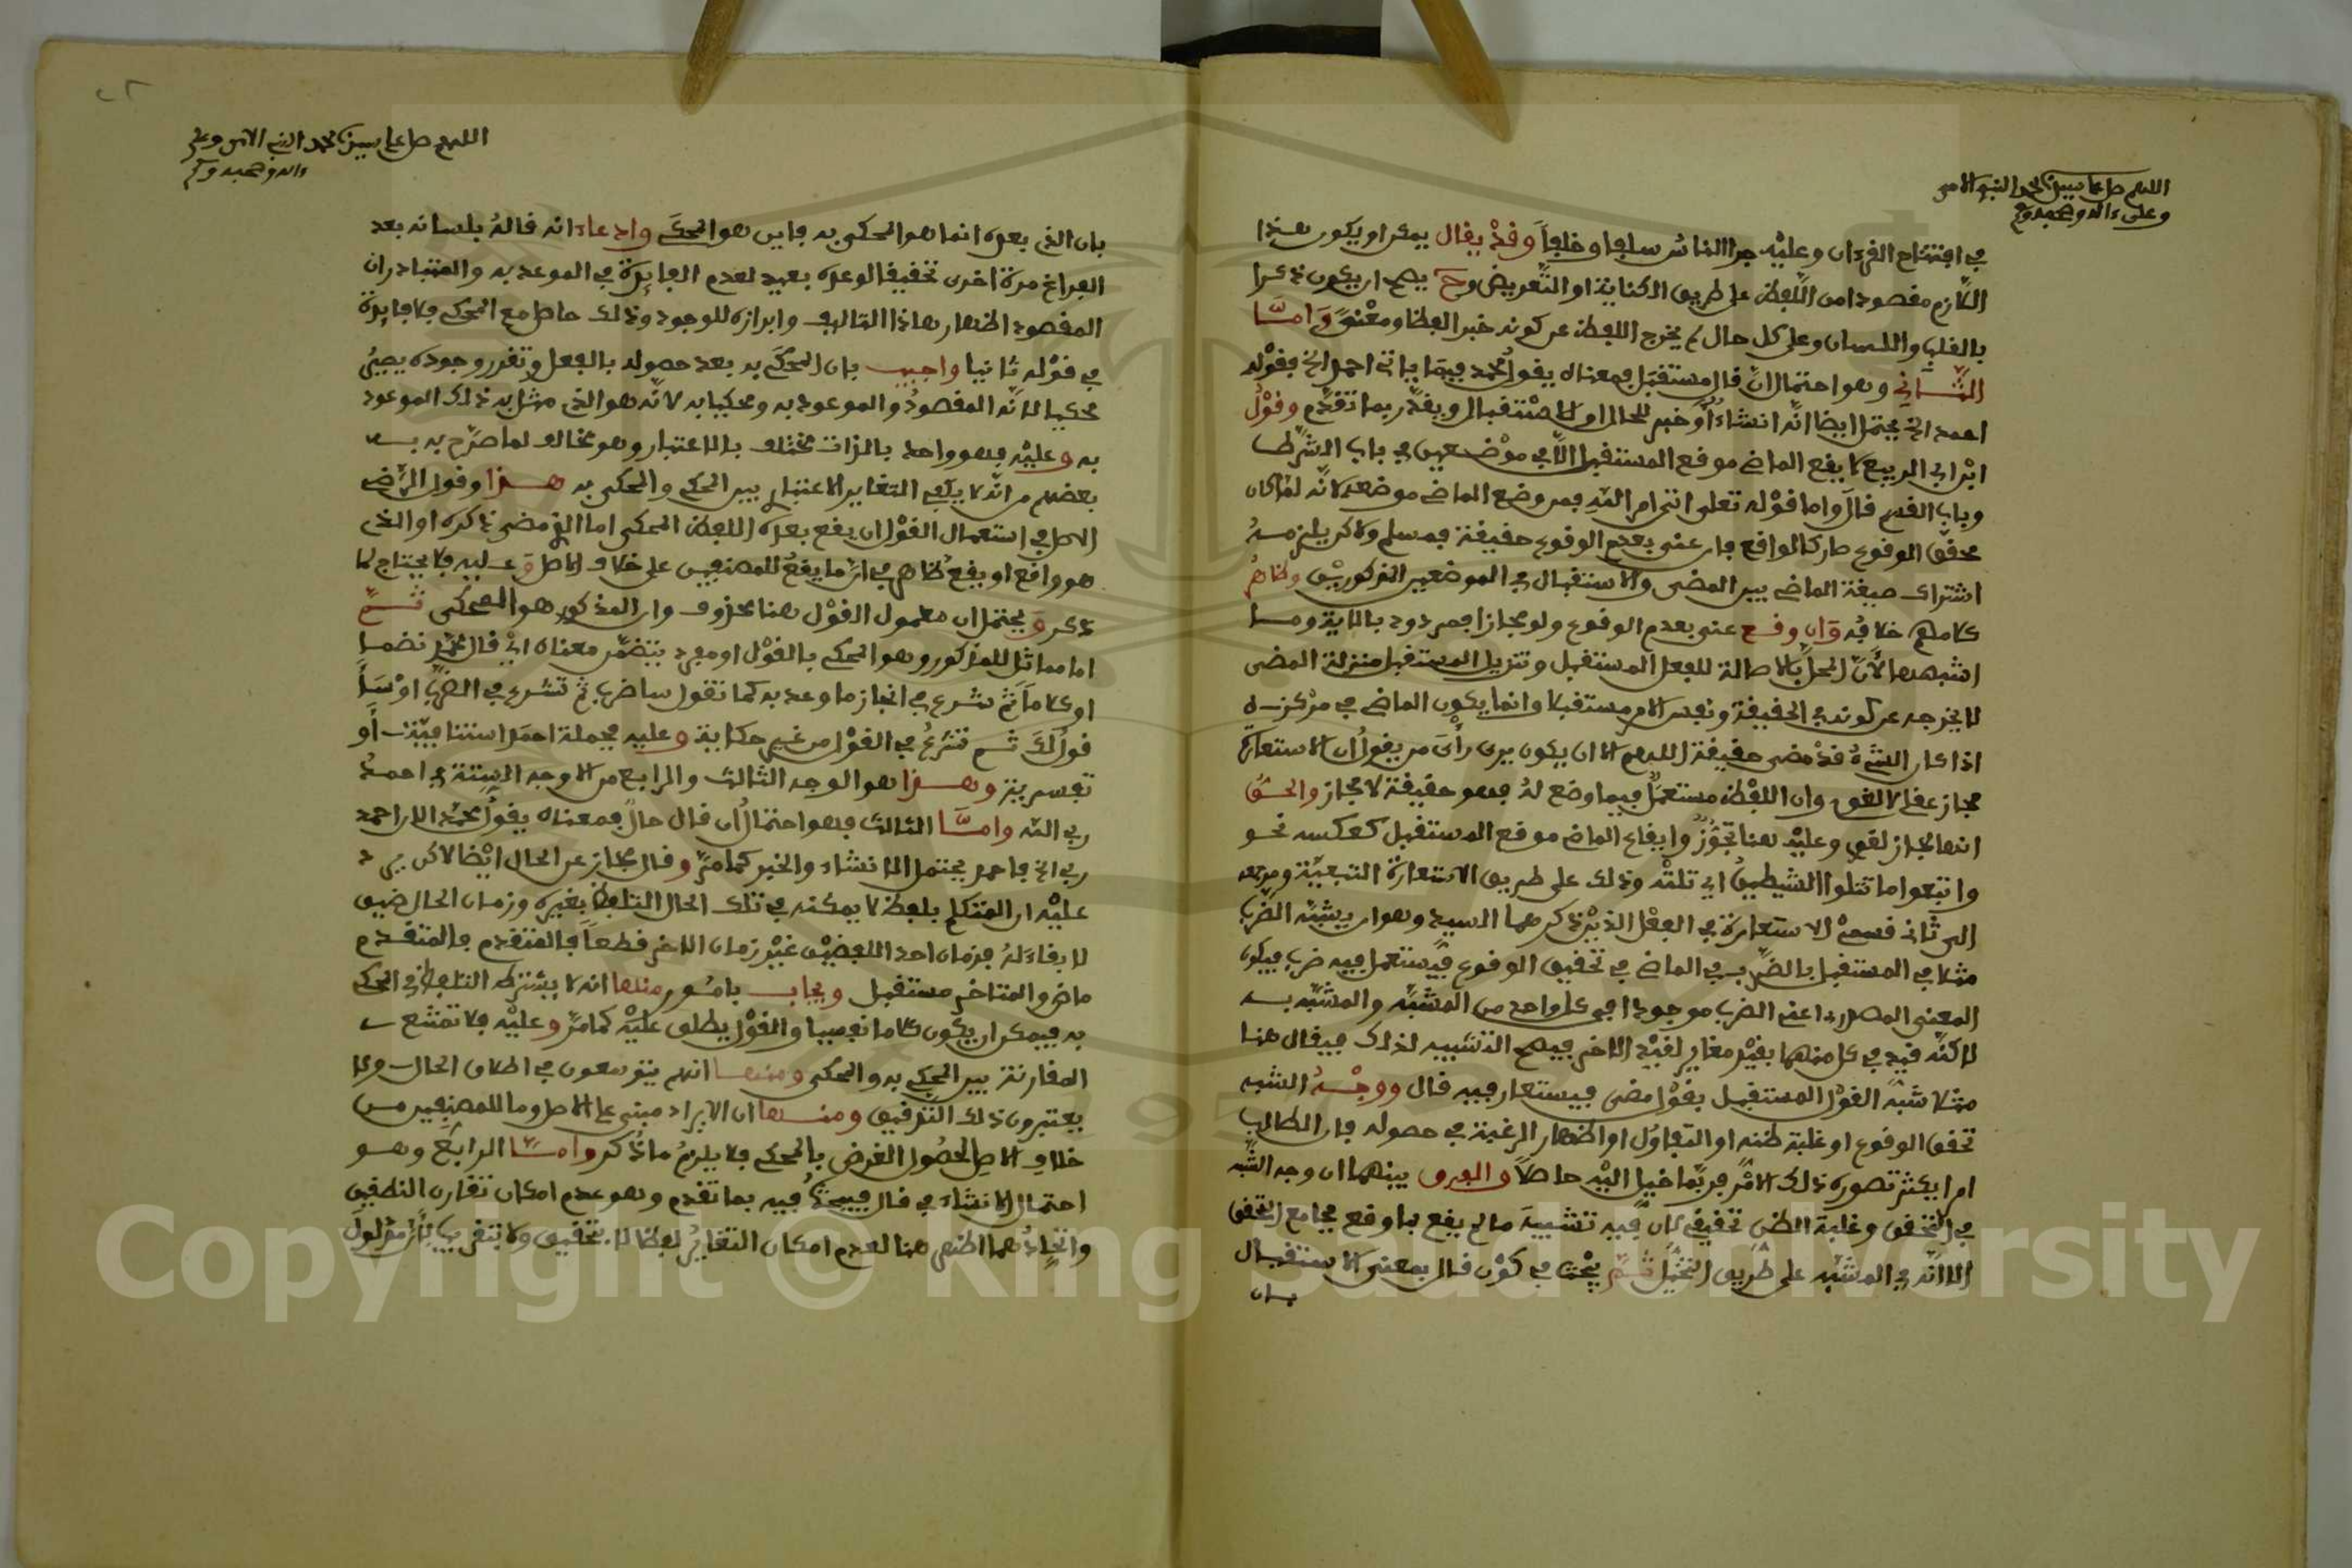 اللهم صل على سيدنا محمد النبي الامي
وعلى ءاله وصحبه وسلم
في افتتاح القرءان وعليه جرا الناس سلفا وخلفا وقد يقال يمكن ان يكون هذا
اللازم مقصودا من اللفظ على طريق الكناية او التعريض وح يصح ان يكون ذكرا
بالقلب واللسان وعلى كل حال لم يخرج اللفظ عن كونه خبر الفظا ومعنى وأما
الثاني وهو احتمال ان قال مستقبل فمعناه يقول محمد فيما ياتي احمد الخ فقوله
احمد الخ يحتمل ايضا انه انشاء أو خبر للحال او الاستقبال ويقدر بما تقدم وقول
ابن ابي الربيع لا يقع الماضي موقع المستقبل الا في موضعين في باب الشرط
وباب القسم قال واما قوله تعلى اتى امر الله فمن وضع الماضي موضعه لانه لما كان
محقق الوقوع صار كالواقع فان عنى بعدم الوقوع حقيقة فمسلم ولاكن يلزمه
اشتراك صيغة الماضي بين المضي والاستقبال في الموضعين المذكورين وظاهر
كلامهم خلافه وان وقع عنى بعدم الوقوع ولو مجازا فمردود بالاية وما
اشبهها لأن المحل بالاصالة للفعل المستقبل وتنزيل المستقبل منزلة المضي
لا يخرجه عن كونه في الحقيقة ونفس الامر مستقبلا وانما يكون الماضي في مركزه
اذا كان الشيء قد مضى حقيقة اللهم الا ان يكون يرى رأي من يقول ان الاستعارة
مجاز عقلي لا لغوي وان اللفظ مستعمل فيما وضع له فهو حقيقة لا مجاز والحق
انها مجاز لغوي وعليه هنا تجوز وايقاع الماضي موقع المستقبل كعكسه نحو
واتبعوا ما تتلوا الشيطين اي تلته وذلك على طريق الاستعارة التبعية ومرجعه
الى ثاني قسمي الاستعارة في الفعل الذين ذكرهما السيد وهو ان يشبه الضرب
مثلا في المستقبل بالضرب في الماضي في تحقيق الوقوع فيستعمل فيه ضرب فيكون
المعنى المصدري اعني الضرب موجودا في كل واحد من المشبه والمشبه به
لاكنه قيد في كل منهما بقيد مغاير لقيد الاخر فيصح التشبيه لذلك فيقال هنا
مثلا شبه القول المستقبل بقول مضى فيستعار فيه قال ووجه الشبه
تحقق الوقوع او غلبة ظنه او التفاؤل او اظهار الرغبة في حصوله فان الطالب
امرا يكثر تصوره ذلك الامر فربما خيل اليه حاصلا والفرق بينهما ان وجه الشبه
في التحقق وغلبة الظن تحقيقي لان فيه تشبيه ما لم يقع بما وقع بجامع التحقق
الا انه في المشبه على طريق التخيل ثم يبحث في كون قال بمعنى الاستقبال
بان
اللهم صل على سيدنا محمد النبي الامي وعلى
ءاله وصحبه وسلم
بان الذي بعده انما هو المحكي به فاين هو المحكي وادعاء انه قاله بلسانه بعد
الفراغ مرة اخرى تحقيقا لوعده بعيد لعدم الفايدة في الموعد به والمتبادر ان
المقصود اظهار هاذا التاليف وابرازه للوجود وذلك حاصل مع المحكي فلا فايدة
في قوله ثانيا واجيب بان المحكي به بعد حصوله بالفعل وتقرر وجوده يصير
محكيا لانه المقصود والموعود به ومحكيا به لانه هو الذي مثل به ذلك الموعود
به وعليه فهو واحد بالذات مختلف بالاعتبار وهو مخالف لما صرح به
بعضهم من انه لا يكفي التغاير الاعتباري بين الحكي والمحكي به هذا وقول الرضي
الاصل في استعمال القول ان يقع بعده اللفظ المحكي اما الذي مضى ذكره او الذي
هو واقع او يقع ظاهر في ان ما يقع للمصنفين على خلاف الاصل وعليه فلا يحتاج لما
ذكر ويحتمل ان معمول القول هنا محذوف وان المذكور هو المحكي ثم
اما مماثل للمذكور وهو المحكي بالقول او مفرد يتضمن معناه اي قال محمد نضما
او كلاما ثم شرع في انجاز ما وعد به كما تقول ساضرب ثم تشرع في الضرب او سأ
قولك ثم تشرع في القول من غير حكاية وعليه فجملة احمد استئنافية أو
تفسيرية وهذا هو الوجه الثالث والرابع من الاوجه الستة في احمد
ربي الله واما الثالث فهو احتمال ان قال حال فمعناه يقول محمد الان احمد
ربي الخ فاحمد يحتمل الانشاء والخبر كما مر وقال مجاز عن الحال ايضا لاكن يرد
عليه ان المتكلم بلفظ لا يمكنه في تلك الحال التلفظ بغيره وزمان الحال ضيق
لا بقاء له فزمان احد اللفضين غير زمان الاخر قطعا فالمتقدم
ماض والمتاخر مستقبل ويجاب بامور منها انه لا يشترط التلفظ في المحكي
به فيمكن ان يكون كلاما نفسيا والقول يطلق عليه كما مر وعليه فلا تمتنع
المقارنة بين المحكي به والمحكي ومنها انهم يتوسعون في اطلاق الحال ولا
يعتبرون ذلك التدقيق ومنها ان الايراد مبني على الاصل وما للمصنفين من
خلاف الاصل لحصول الغرض بالمحكي فلا يلزم ما ذكر واما الرابع وهو
احتمال الانشاء في قال فيبحث فيه بما تقدم وهو عدم امكان تقارن النطقين
واتحادهما اظهر هنا لعدم امكان التغاير لفظا لا تحقيق ولا بتقريب لان مدلول